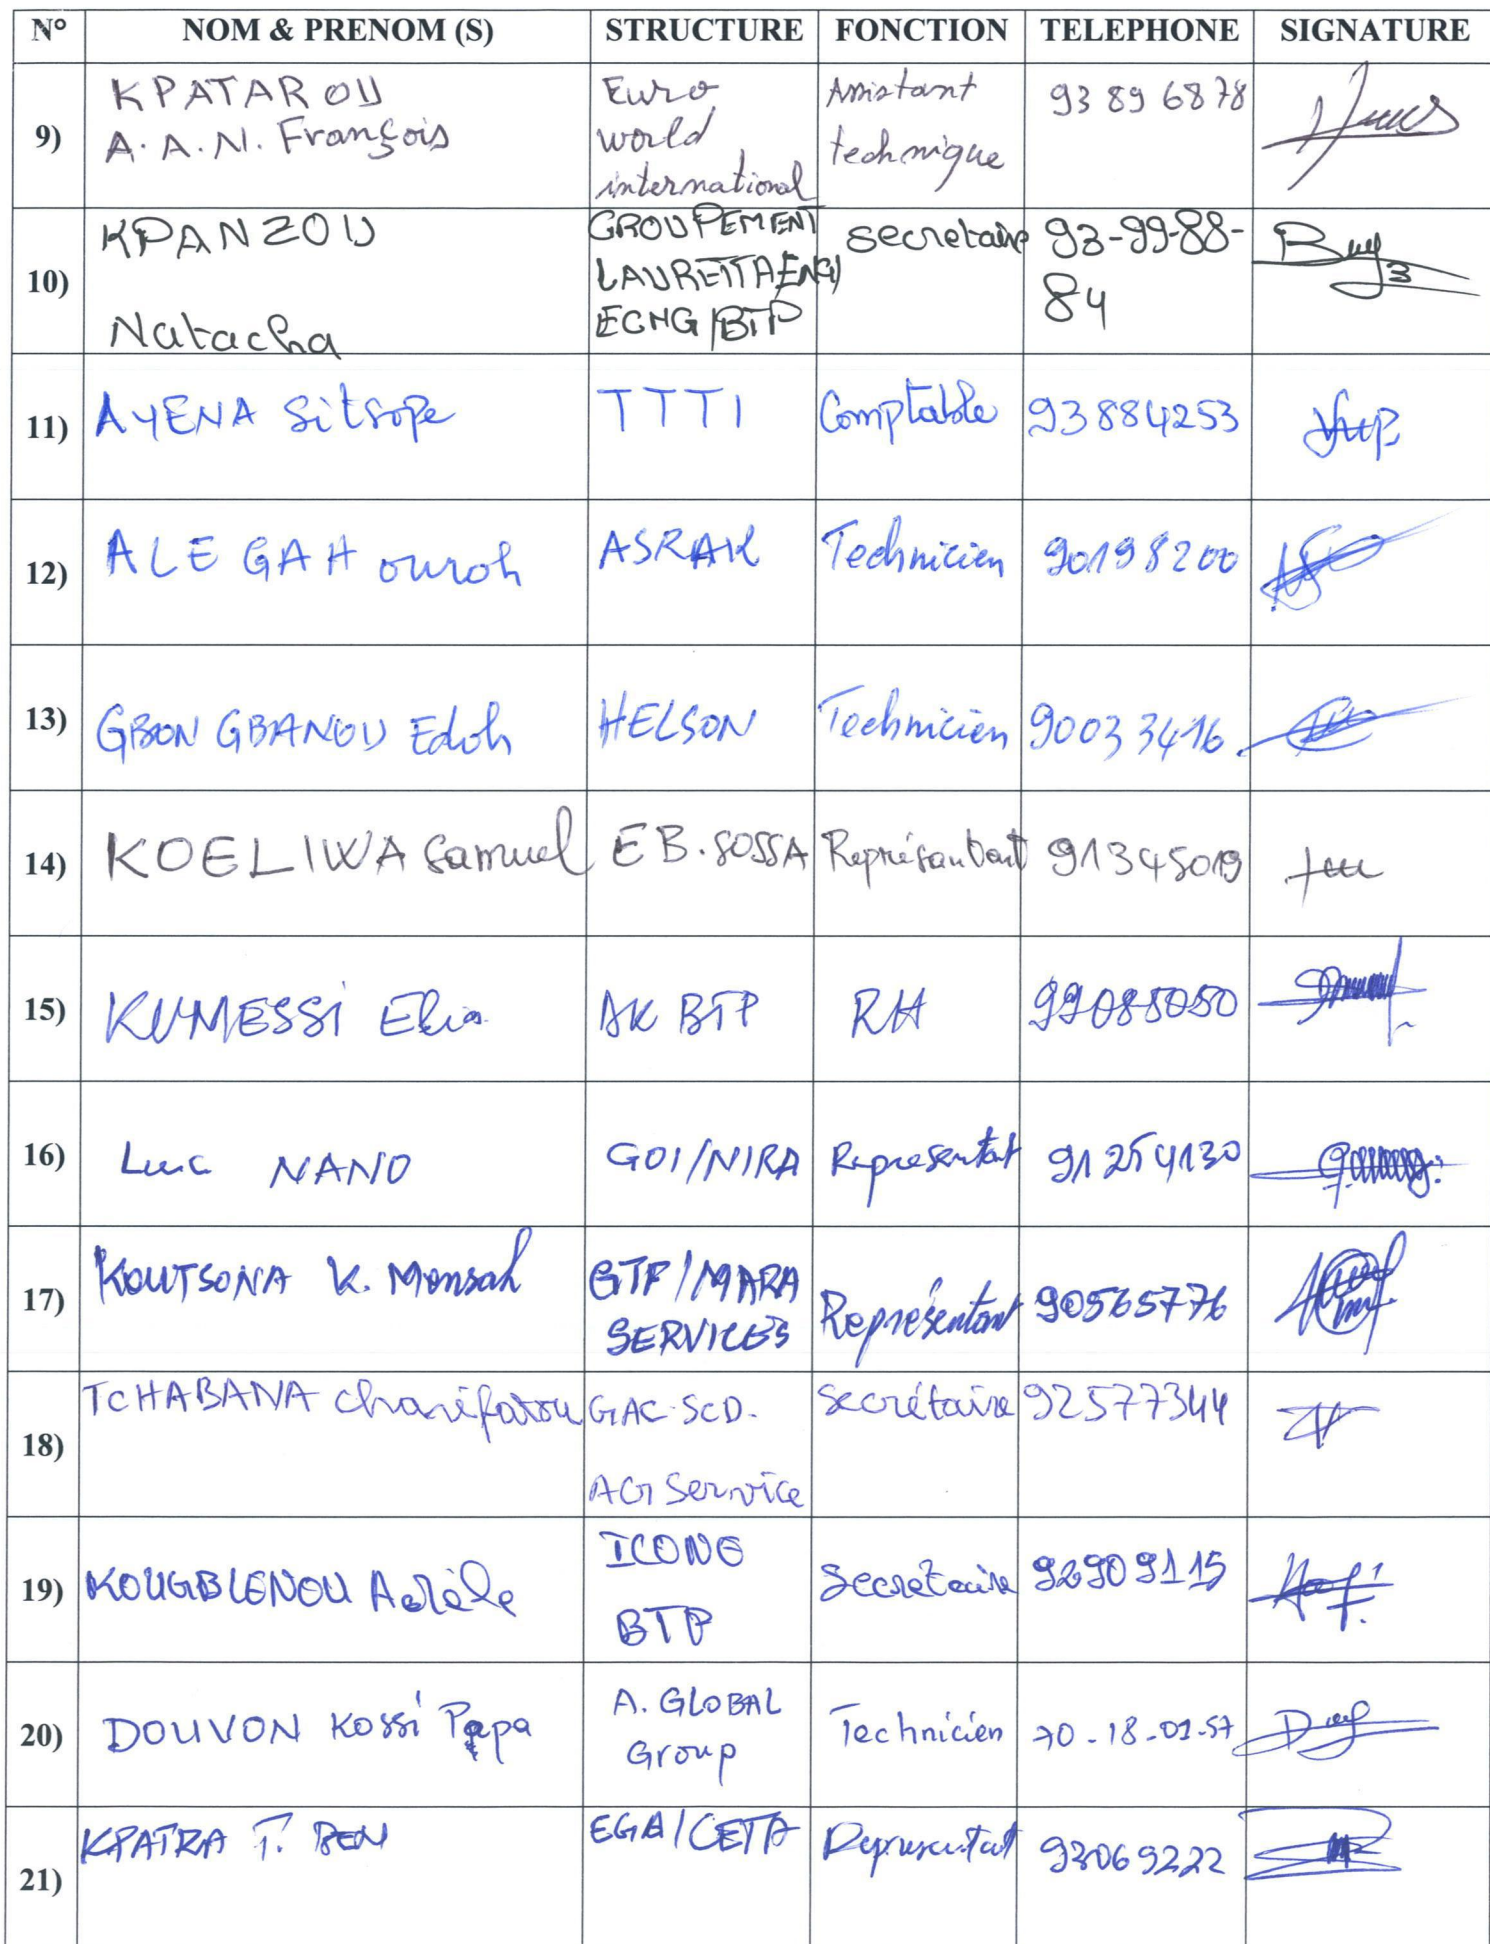 N° NOM & PRENOM (S) STRUCTURE FONCTION TELEPHONE SIGNATURE
9) KPATAROU A.A.N. François Euro world international Assistant technique 93 89 68 78
10) KPANZOU Natacha GROUPEMENT LAURETTA ENGI ECNG/BTP secretaire 93-99-88-84
11) AYENA Sitsope TTTI Comptable 93884253
12) ALE GAH ouroh ASRAK Technicien 90198200
13) GBON GBANOU Edoh HELSON Technicien 90033416
14) KOELIWA Samuel EB.SOSSA Représantant 91345019
15) KUMESSI Elia AK BTP RH 99085050
16) Luc NANO GOI/NIRA Representant 91254130
17) KOUTSONA K. Mensah GTP/MARA SERVICES Représentant 90565776
18) TCHABANA Charifatou GAC-SCD. AGI Service Secrétaire 92577344
19) KOUGBLENOU Adèle ICONE BTP Secretaire 92909115
20) DOUVON Kossi Papa A. GLOBAL Group Technicien 70-18-01-57
21) KPATRA T. BEN EGA/CETP Representant 93069222